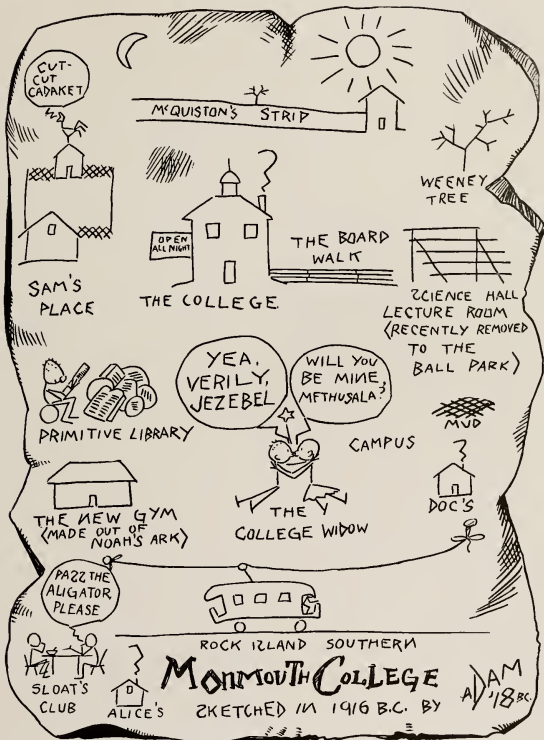 CUT-
CUT
CADAKET
McQUISTON'S STRIP
WEENEY
TREE
SAM'S
PLACE
OPEN
ALL NIGHT
THE COLLEGE.
THE BOARD
WALK
SCIENCE HALL
LECTURE ROOM
(RECENTLY REMOVED
TO THE
BALL PARK)
PRIMITIVE LIBRARY
YEA,
VERILY,
JEZEBEL
WILL YOU
BE MINE,
METHUSALA?
CAMPUS
MUD
DOC'S
THE NEW GYM
(MADE OUT OF
NOAH'S ARK)
THE
COLLEGE WIDOW
PASS THE
ALIGATOR
PLEASE
SLOAT'S
CLUB
ALICE'S
ROCK ISLAND SOUTHERN
MONMOUTH COLLEGE
SKETCHED IN 1916 B.C. BY
ADAM
'18 B.C.